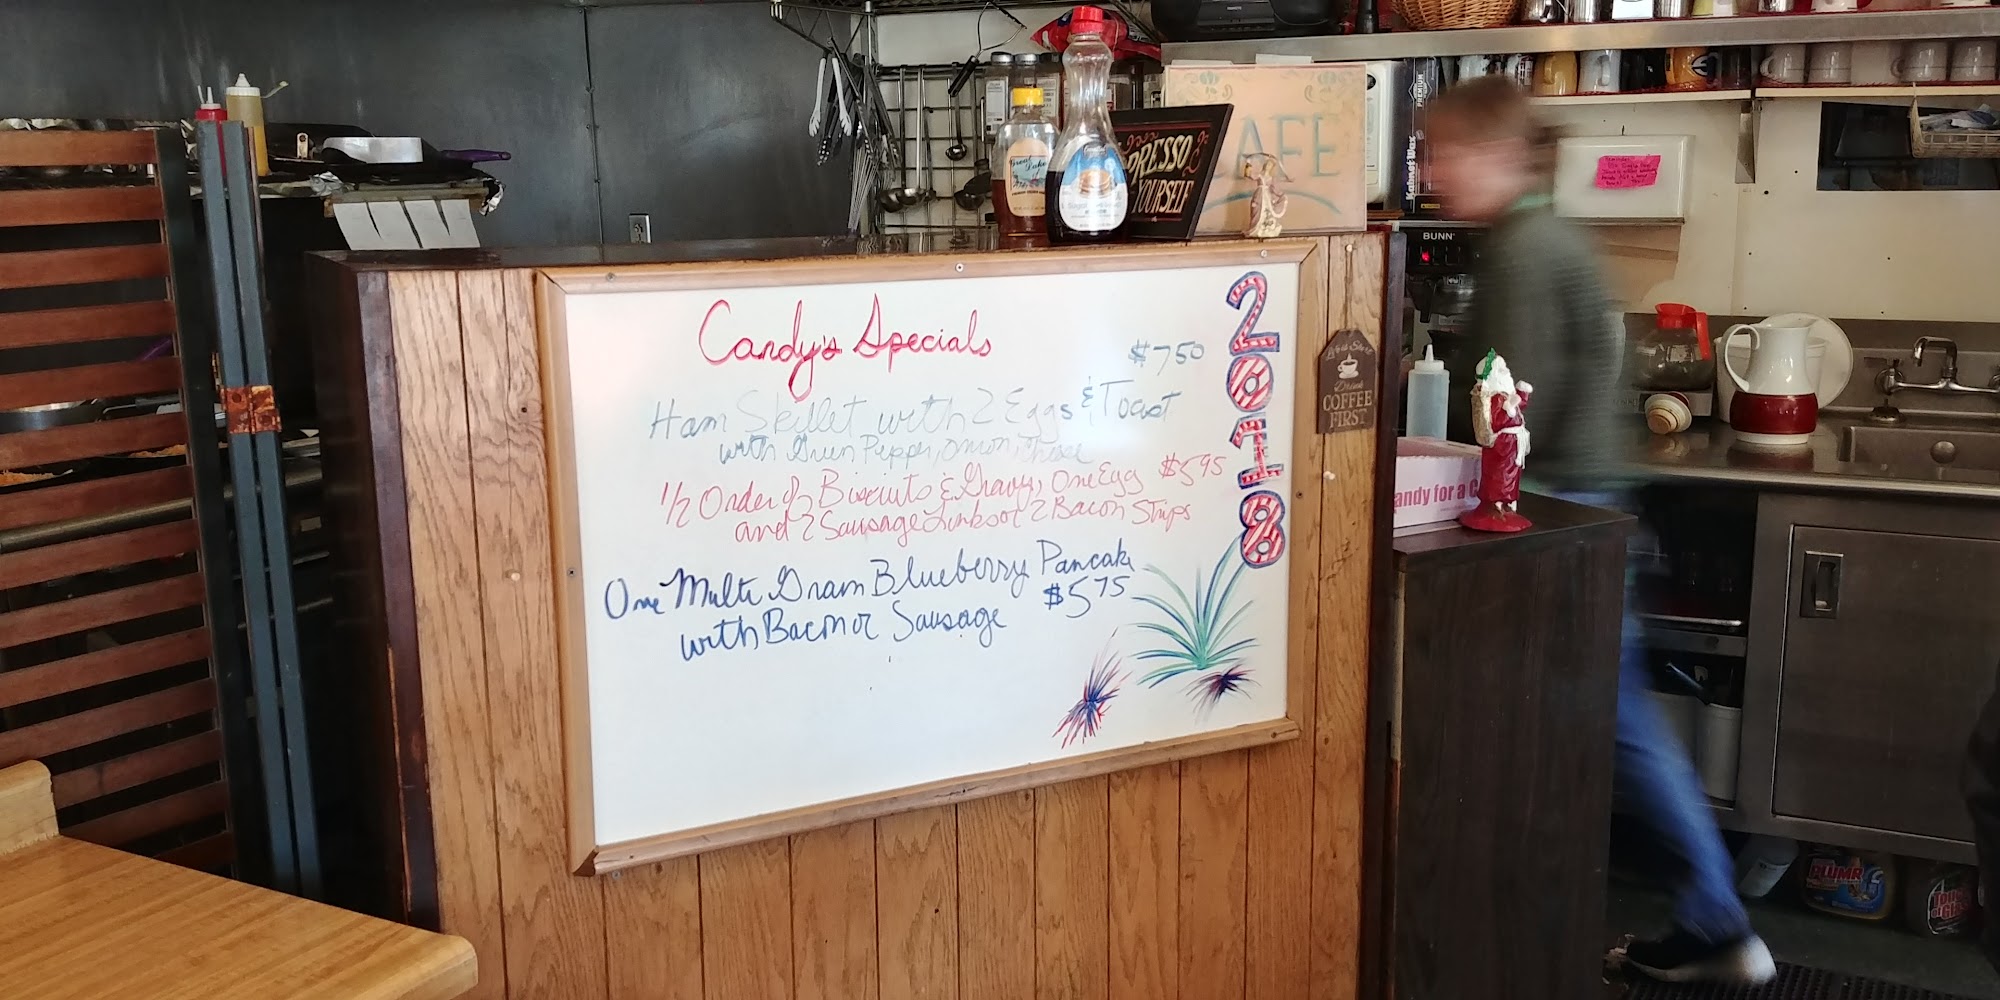 Candy's Specials
$7.50
Ham Skillet with 2 Eggs & Toast
with Green Pepper, onion, cheese
1/2 Order of Biscuits & Gravy, One Egg $5.95
and 2 Sausage Links or 2 Bacon Strips
One Multi Grain Blueberry Pancake
$5.75
with Bacon or Sausage
2018
PRESSO
YOURSELF
CAFE
BUNN
PREMIUM
Life is Short
Drink
COFFEE
FIRST
andy for a C
PLUMR